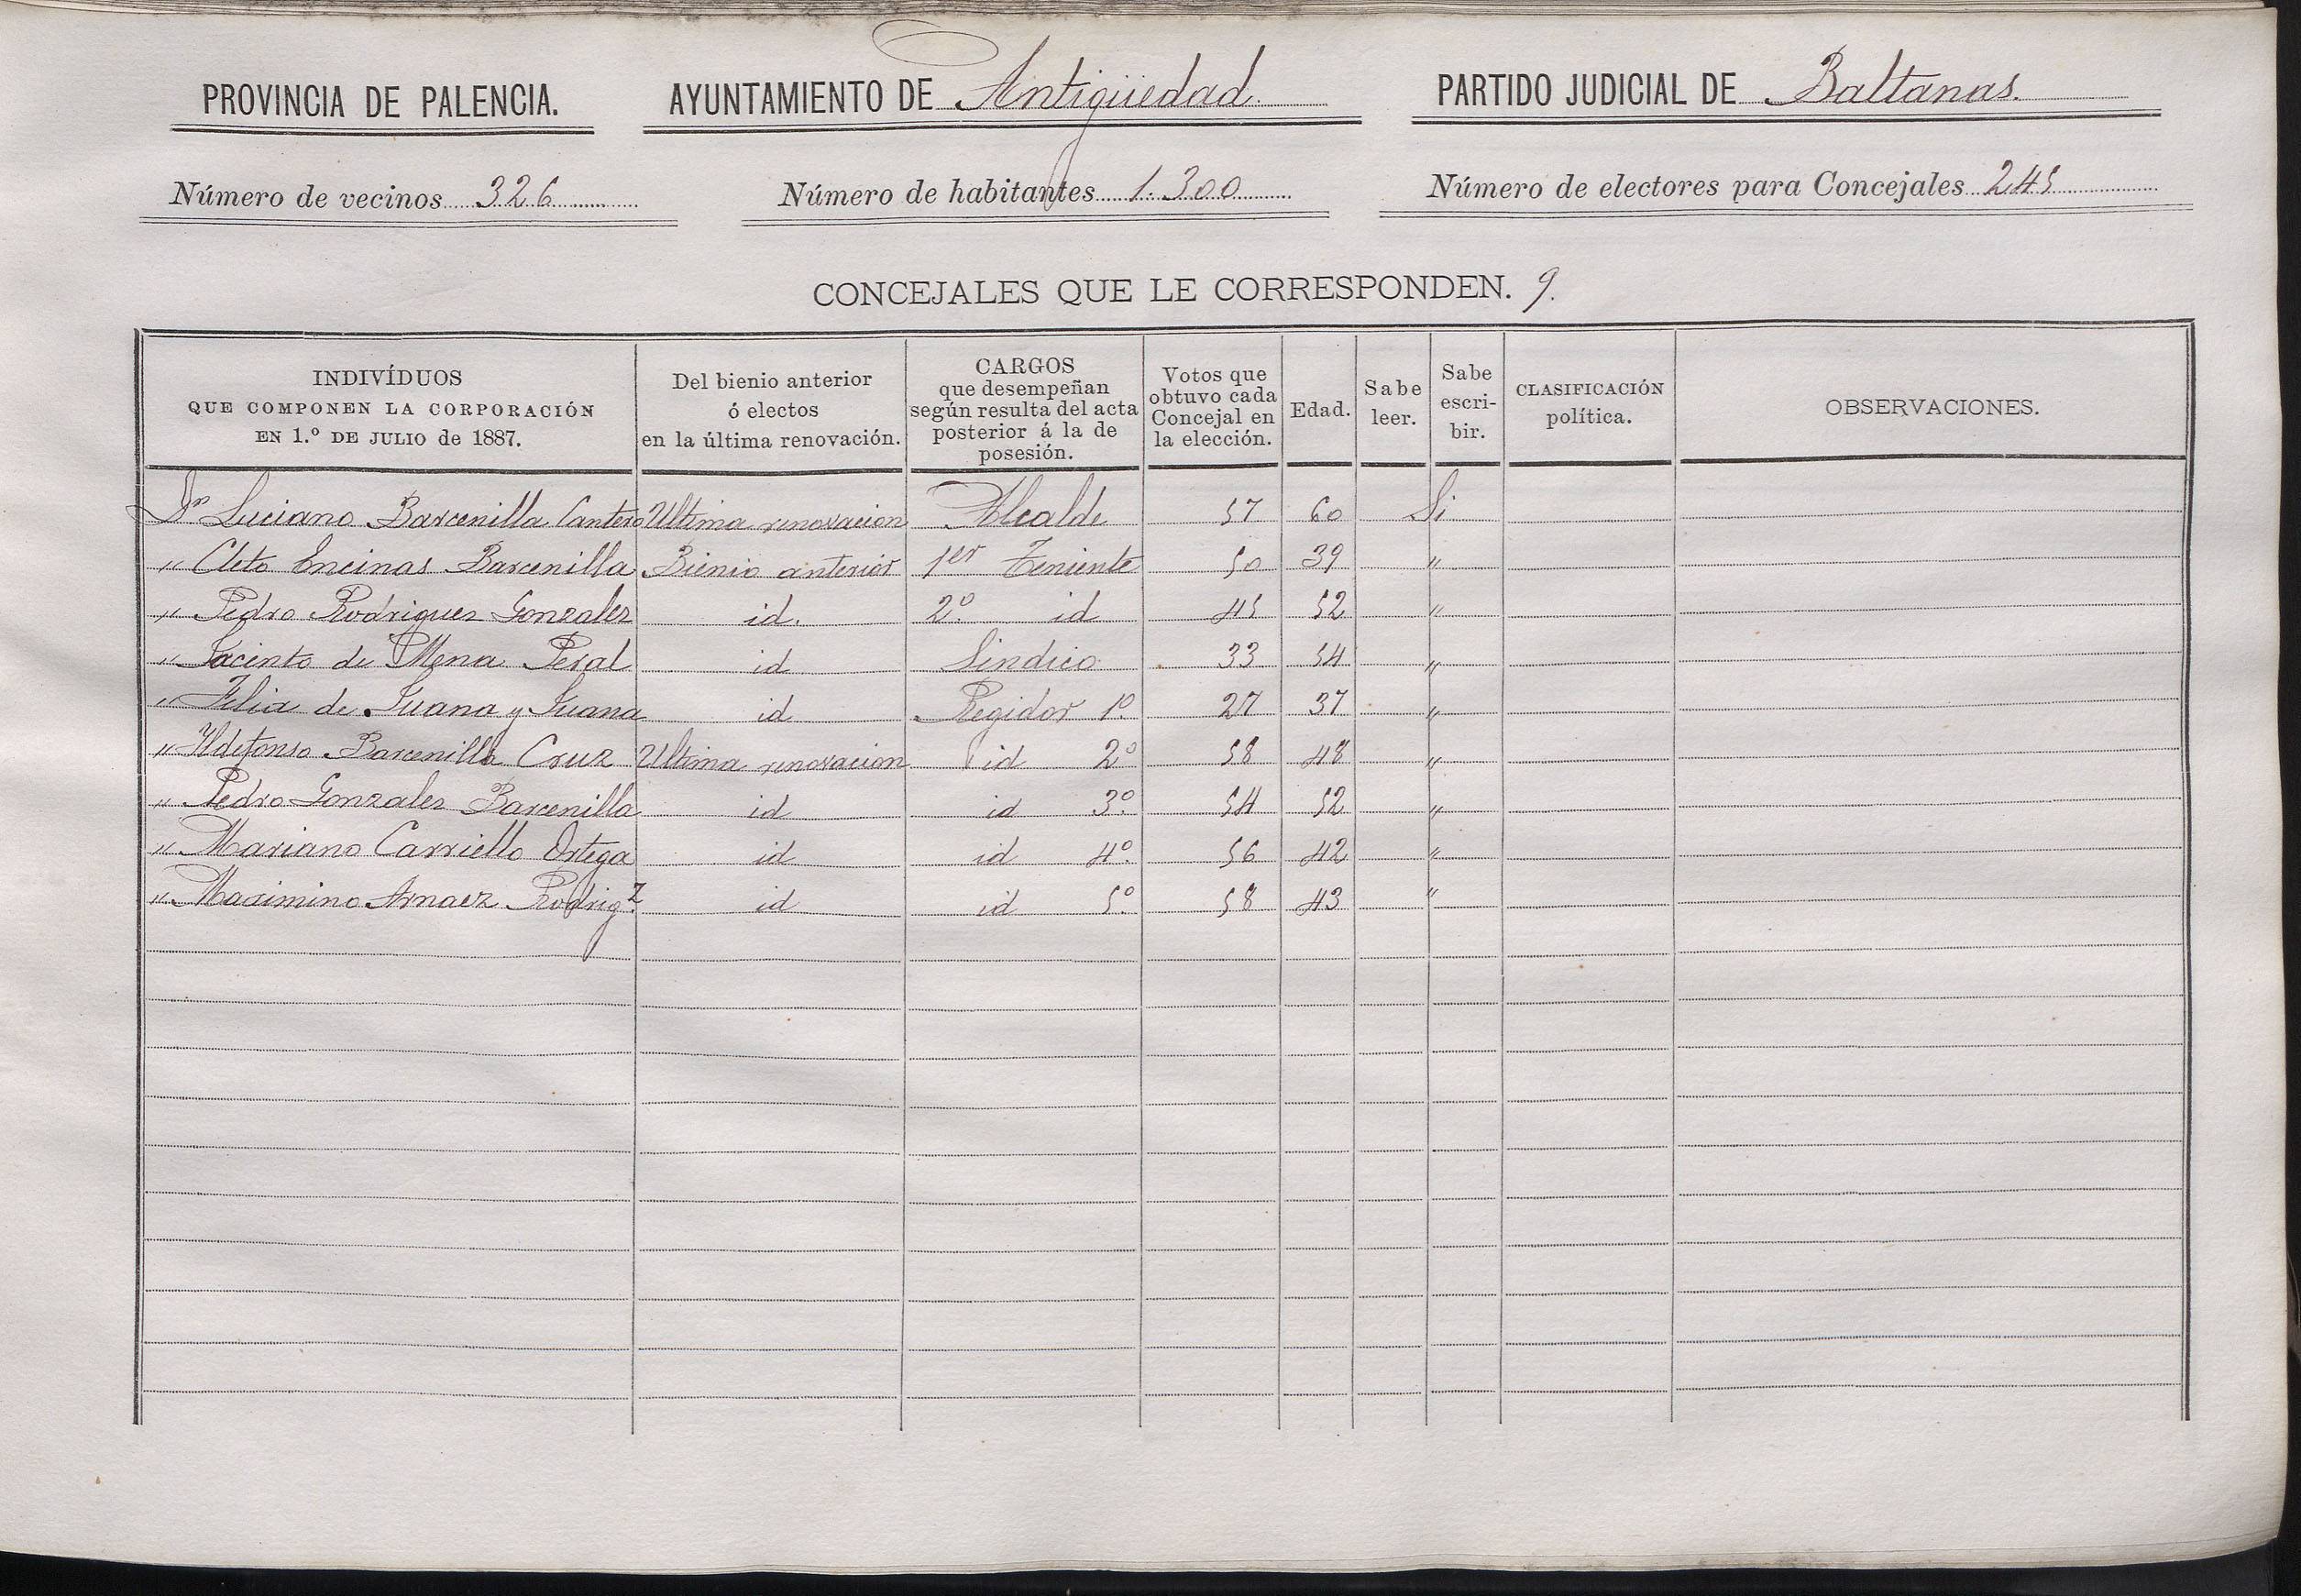 PROVINCIA DE PALENCIA. AYUNTAMIENTO DE Antigüedad. PARTIDO JUDICIAL DE Baltanas.
Número de vecinos 326 Número de habitantes 1.300 Número de electores para Concejales 245
CONCEJALES QUE LE CORRESPONDEN. 9.
INDIVÍDUOS
QUE COMPONEN LA CORPORACIÓN
EN 1.º DE JULIO de 1887.
Del bienio anterior
ó electos
en la última renovación.
CARGOS
que desempeñan
según resulta del acta
posterior á la de
posesión.
Votos que
obtuvo cada
Concejal en
la elección.
Edad.
Sabe
leer.
Sabe
escri-
bir.
CLASIFICACIÓN
política.
OBSERVACIONES.
Dn Luciano Barcenilla Cantero Ultima renovacion Alcalde 57 60 Si
" Cleto Encinas Barcenilla Bienio anterior 1er Teniente 50 39 "
" Pedro Rodriguez Gonzalez id. 2º. id 45 52 "
" Jacinto de Mena Peral id Sindico 33 54 "
" Felix de Juana y Juana id Regidor 1º. 27 37 "
" Yldefonso Barcenilla Cruz Ultima renovacion id 2º 58 48 "
" Pedro Gonzalez Barcenilla id id 3º. 54 52 "
" Mariano Carriello Ortega id id 4º. 56 42 "
" Maximino Arnaez Rodrigz. id id 5º. 58 43 "